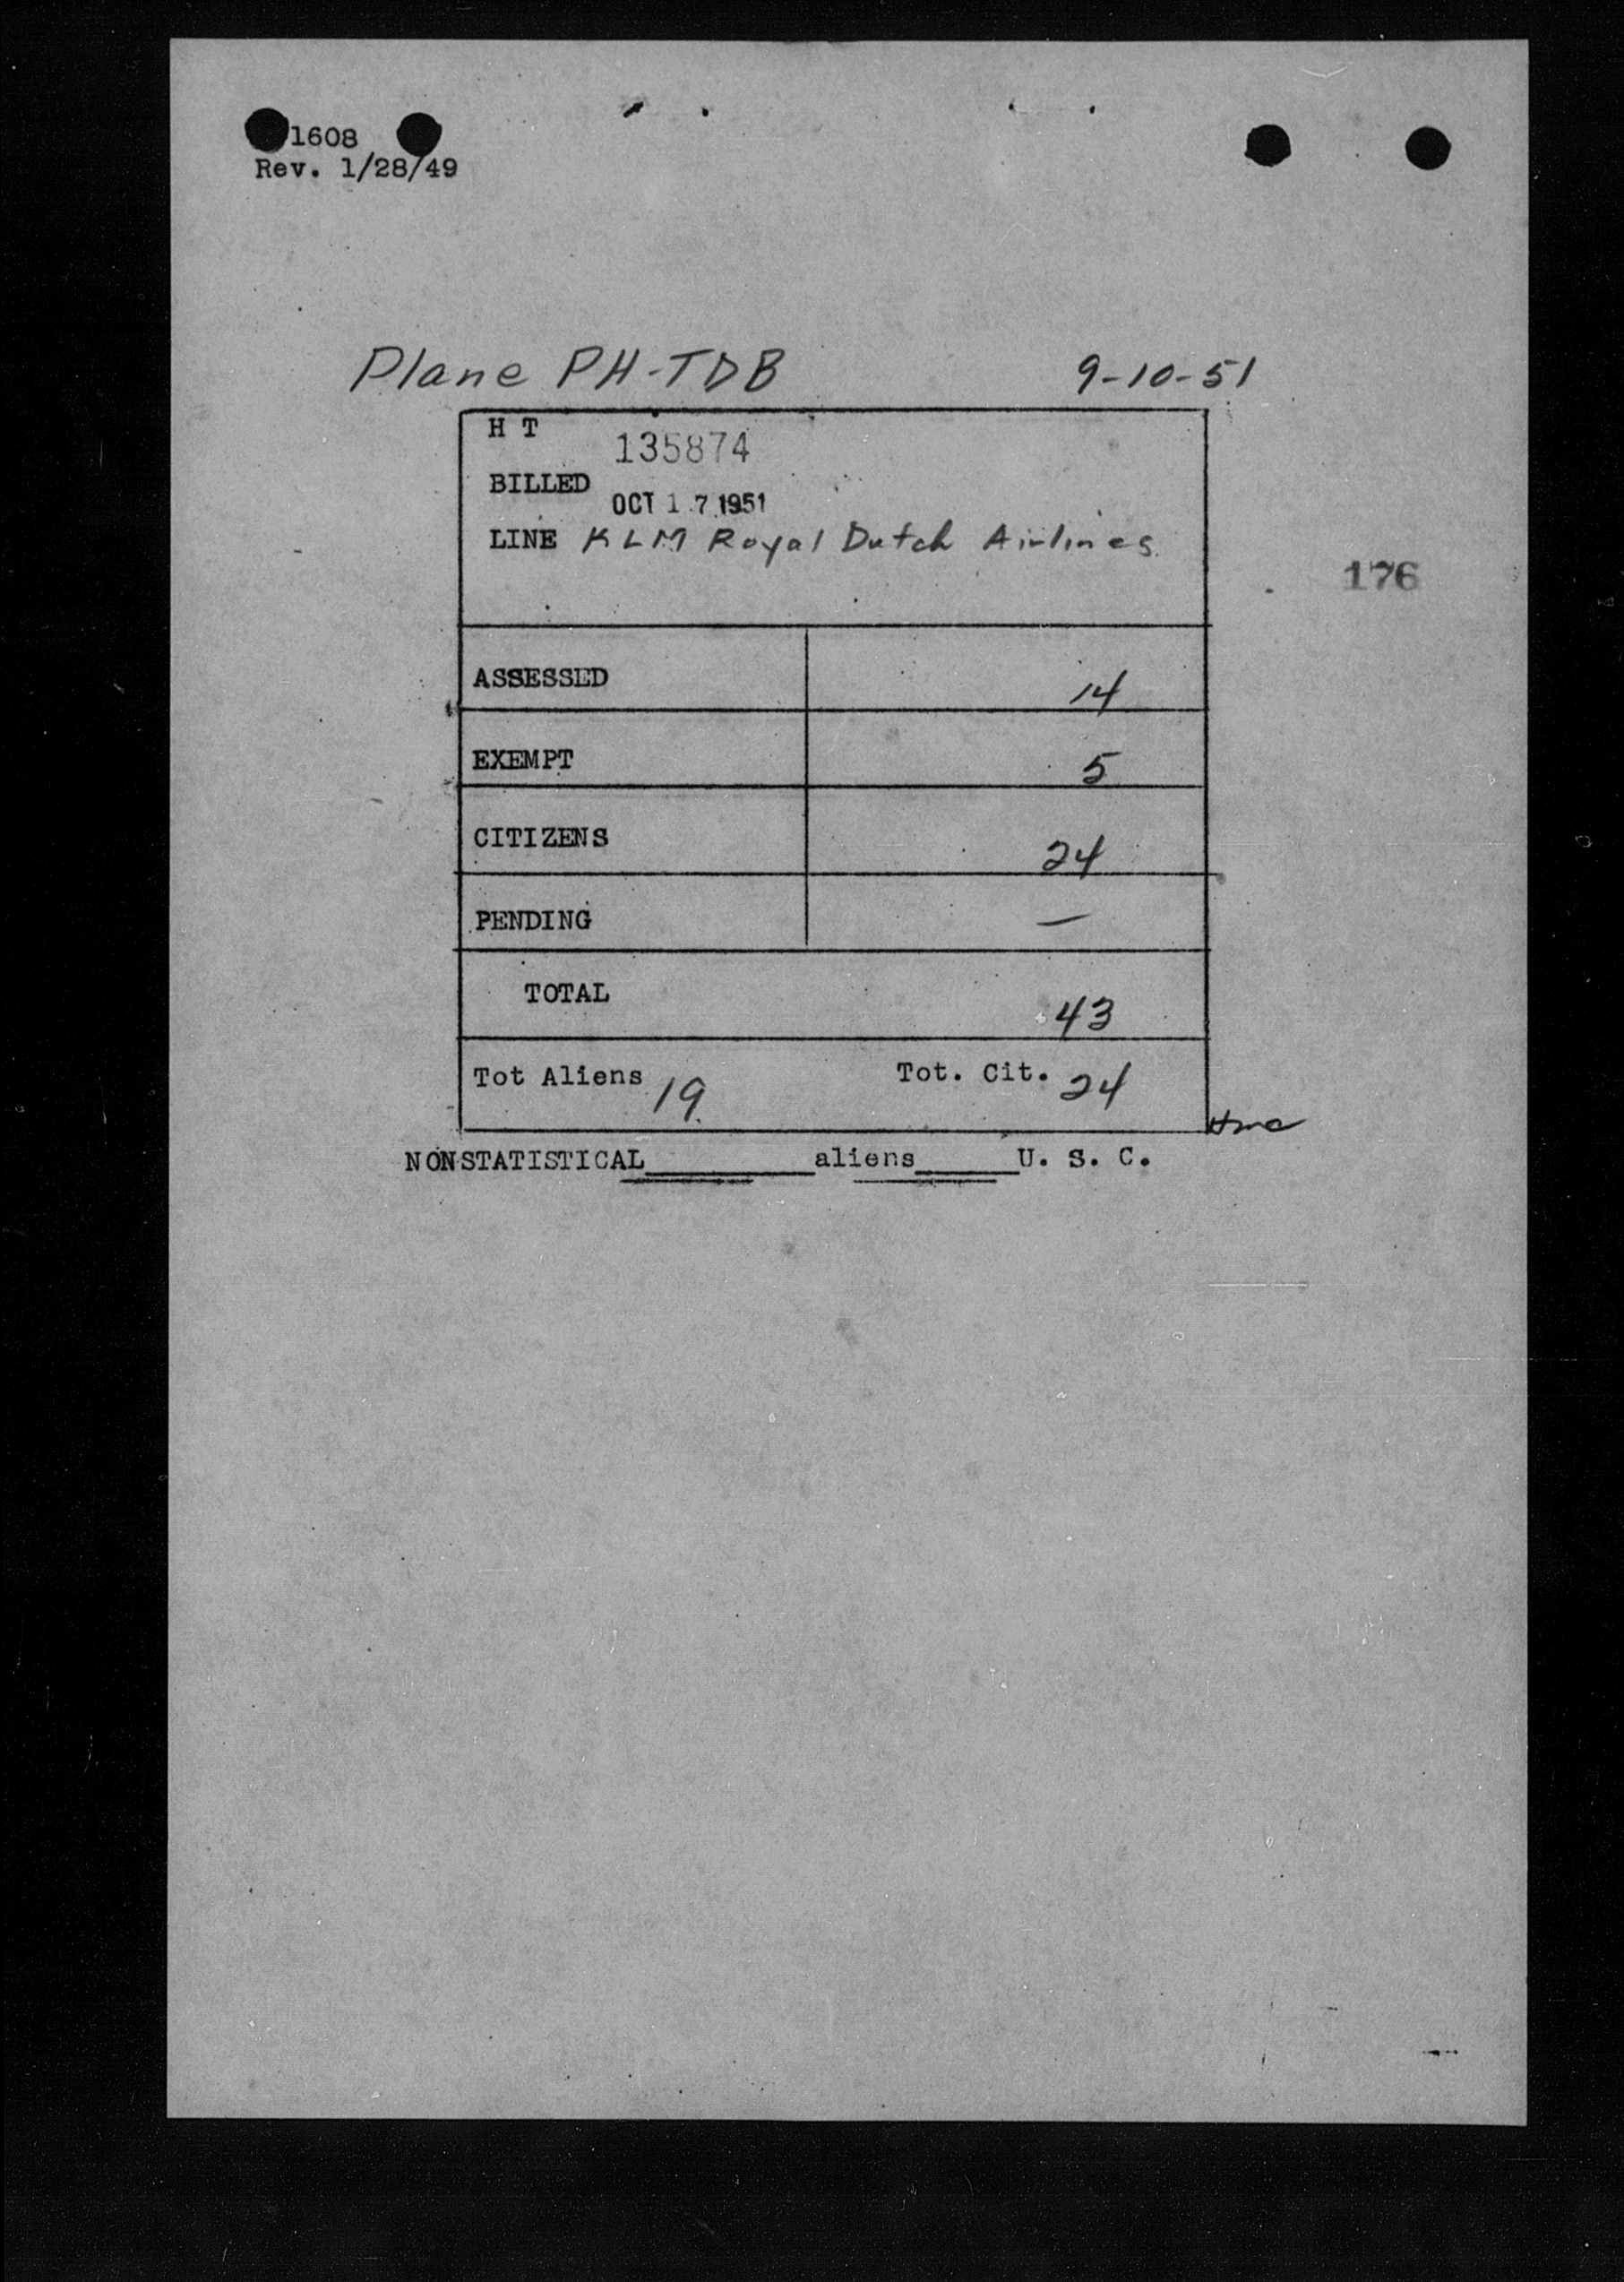 1608
Rev. 1/28/49
Plane PH-TDB 9-10-51
H T 135874
BILLED OCT 17 1951
LINE KLM Royal Dutch Airlines
176
ASSESSED 14
EXEMPT 5
CITIZENS 24
PENDING —
TOTAL 43
Tot Aliens 19 Tot. Cit. 24
NONSTATISTICAL________aliens_____U. S. C.